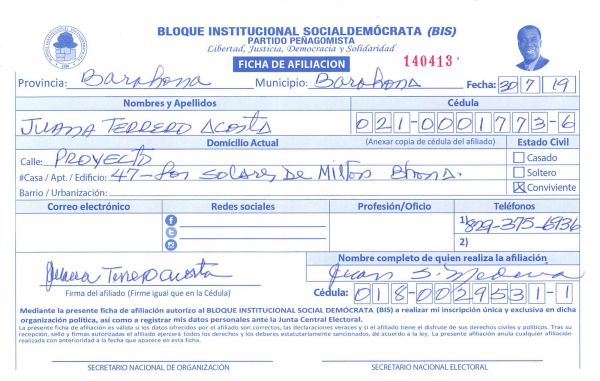 BLOQUE INSTITUCIONAL SOCIALDEMÓCRATA (BIS)
PARTIDO PEÑAGOMISTA
Libertad, Justicia, Democracia y Solidaridad
FICHA DE AFILIACION 140413
Provincia: Barahona Municipio: Barahona Fecha: 30 7 19
Nombres y Apellidos Cédula
JUANA TERRERO ACOSTA 021-0001773-6
Domicilio Actual (Anexar copia de cédula del afiliado) Estado Civil
Calle: PROYECTO Casado
#Casa / Apt. / Edificio: 47-Los Solares De Milton Bhona. Soltero
Barrio / Urbanización: Conviviente
Correo electrónico Redes sociales Profesión/Oficio Teléfonos
1) 829-375-6936
2)
Nombre completo de quien realiza la afiliación
Juana Terrero Acosta Juan S. Medina
Firma del afiliado (Firme igual que en la Cédula) Cédula: 018-0029531-1
Mediante la presente ficha de afiliación autorizo al BLOQUE INSTITUCIONAL SOCIAL DEMÓCRATA (BIS) a realizar mi inscripción única y exclusiva en dicha
organización política, así como a registrar mis datos personales ante la Junta Central Electoral.
La presente ficha de afiliación es válida si los datos ofrecidos por el afiliado son correctos, las declaraciones veraces y si el afiliado tiene el disfrute de sus derechos civiles y políticos. Tras su
recepción, sello y firmas autorizadas el afiliado ejercerá todos los derechos y los deberes estatutariamente sancionados, de acuerdo a la ley. La presente afiliación anula cualquier afiliación
realizada con anterioridad a la fecha que aparece en esta ficha.
SECRETARIO NACIONAL DE ORGANIZACIÓN SECRETARIO NACIONAL ELECTORAL